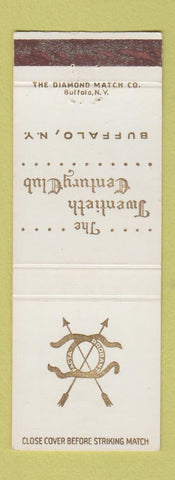 THE DIAMOND MATCH CO.
Buffalo, N.Y.
The
Twentieth
Century Club
BUFFALO, N.Y.
CLOSE COVER BEFORE STRIKING MATCH